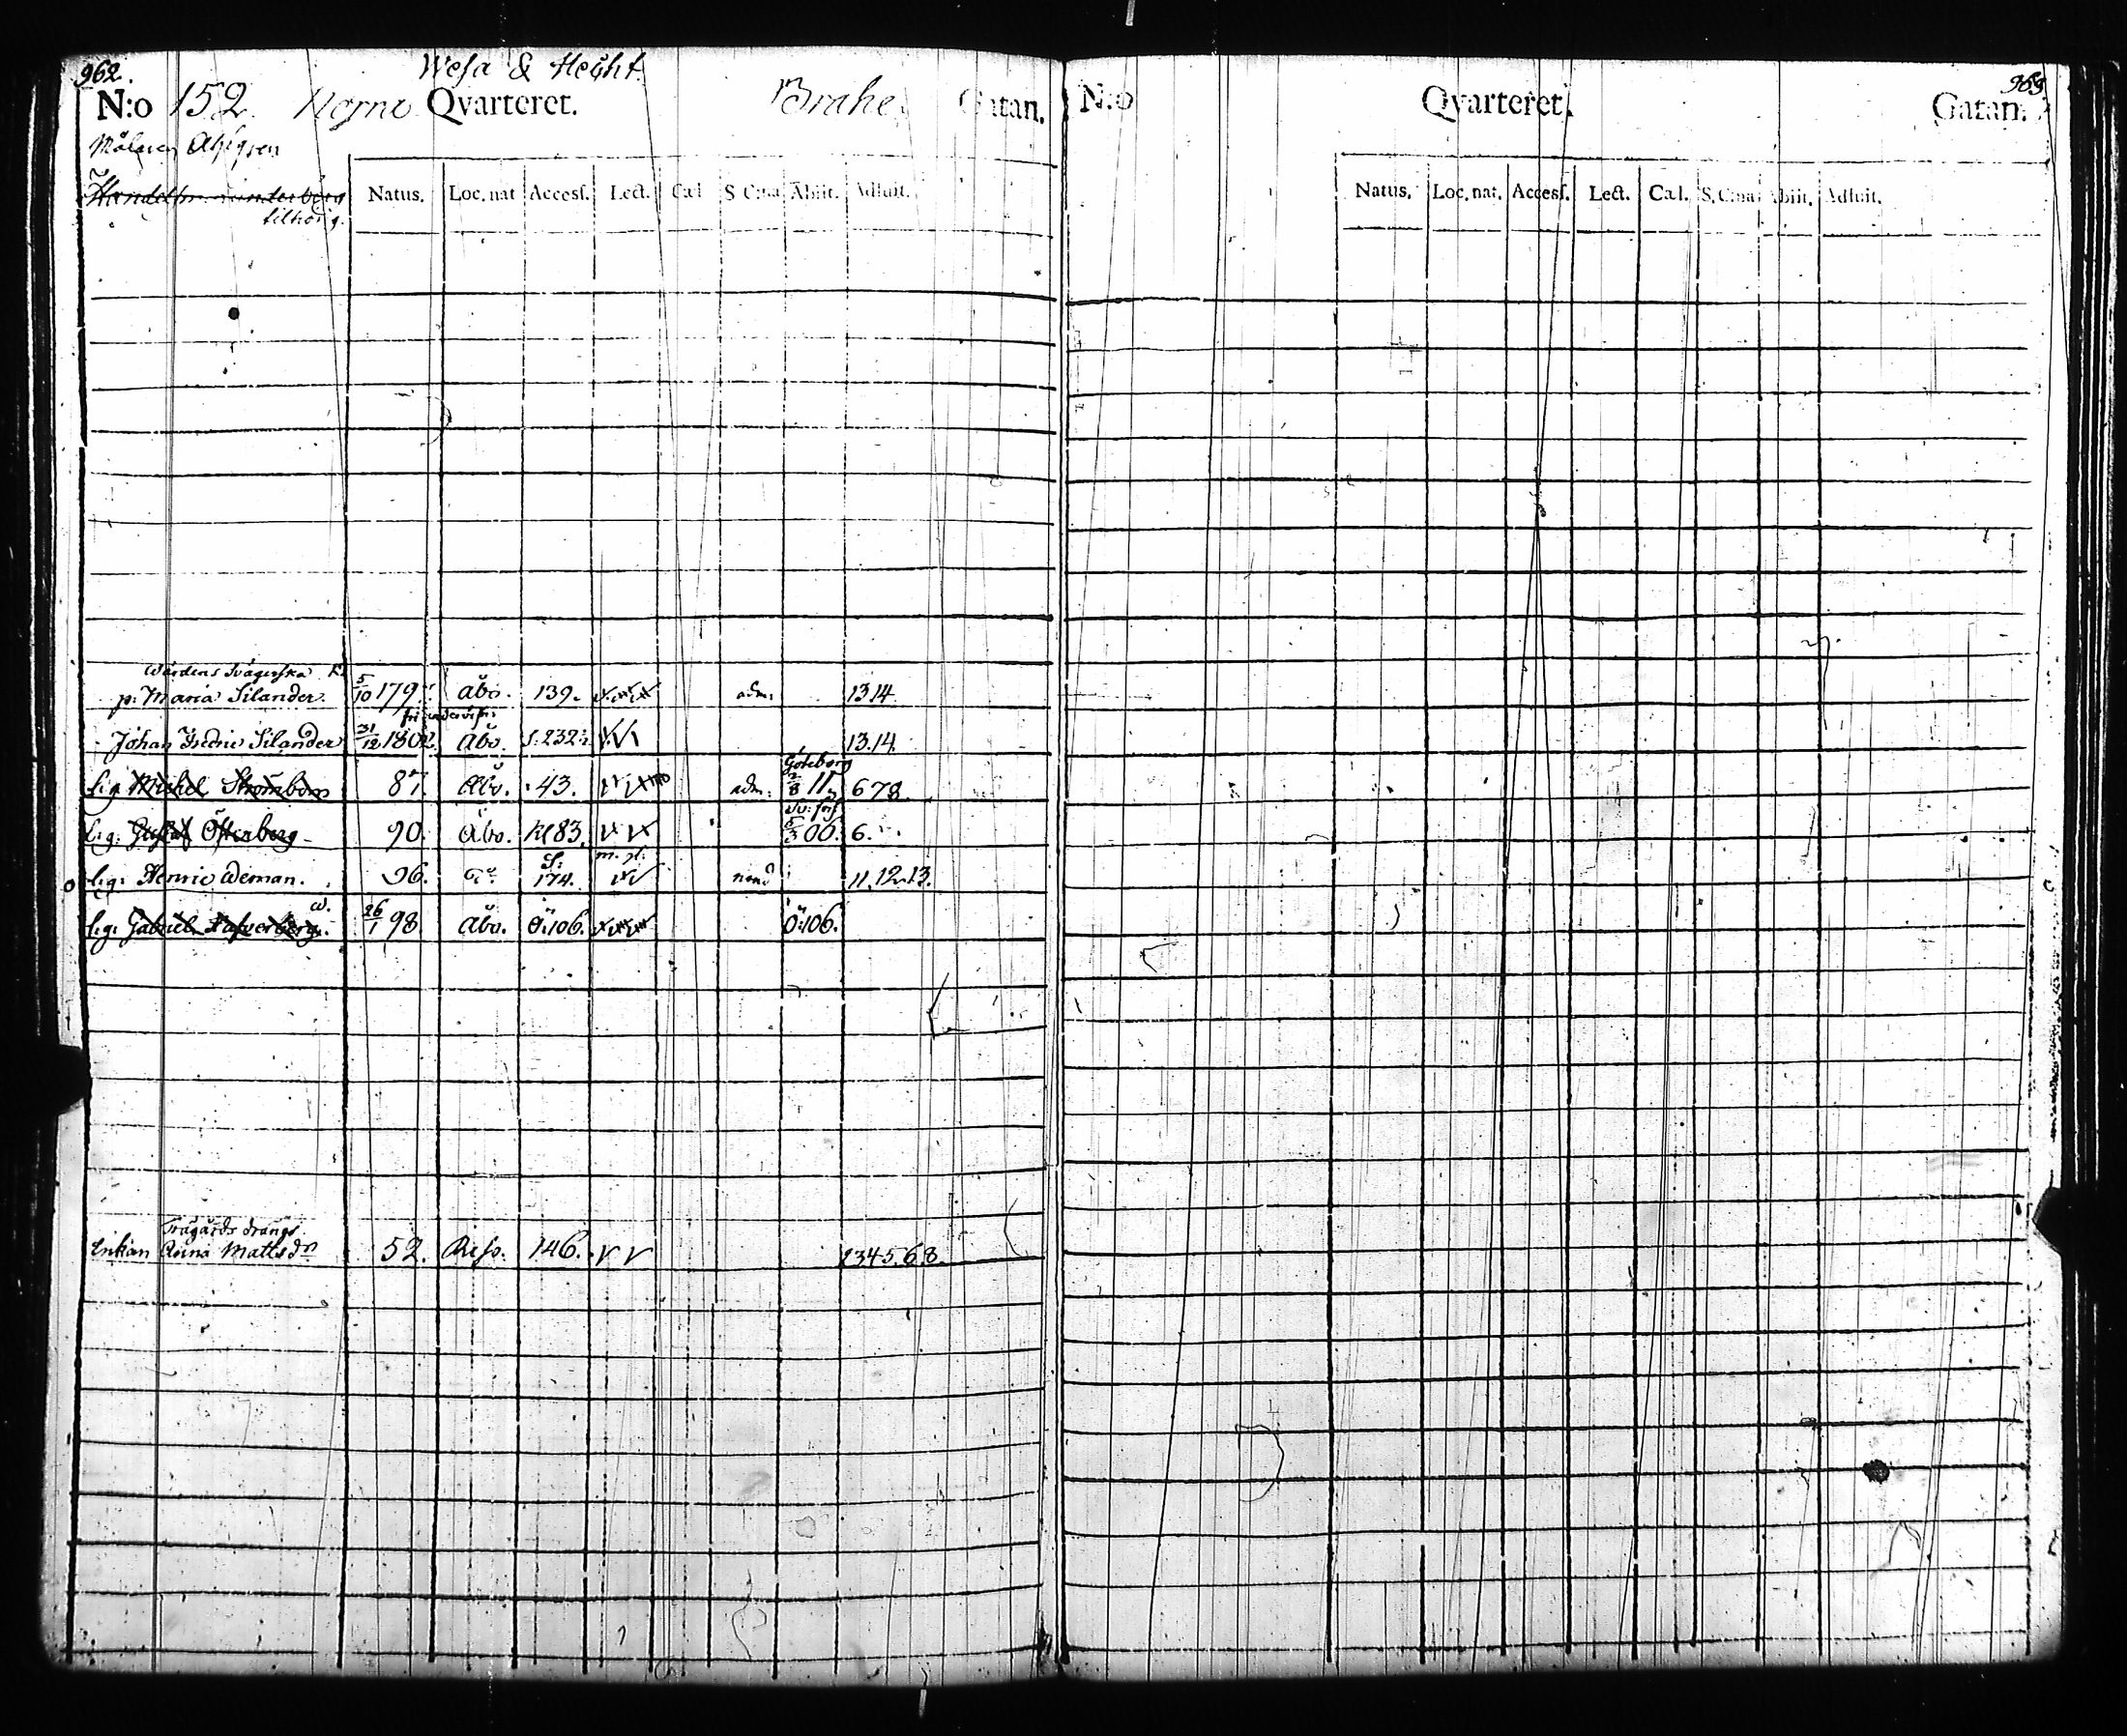 962.
Wesa & Hecht
N:o 152. Horno Qvarteret. Brahe Gatan.
Målaren Ahlgren
tilhörig.
Natus. Loc. nat Access. Lect. Cal S Cœna Abiit. Adfuit.
Wärdens Svägerska
p: Maria Silander. 5/10 179 Åbo. 139. adm: 13 14
Johan Fredric Silander 31/12 1802. Åbo. S: 232 13.14.
Göteborg
lig Michel Strömbom 87. Åbo. 43. adm: 11 6 7 8.
lig: Gustaf Österberg 90. Åbo. Kl 83. 5/3 00. 6.
S: m. pl:
lig: Henric Weman. 96. 174. 11.12.13.
lig: Gabriel 26/1 98 Åbo. Ö:106. Ö:106.
Trägårds drängs
Enkan Anna Mattsdr 52. Reso. 146. 2 3 4 5. 6. 8.
963
N:o Qvarteret. Gatan.
Natus. Loc. nat. Access. Lect. Cal. S. Cœna Abiit. Adfuit.